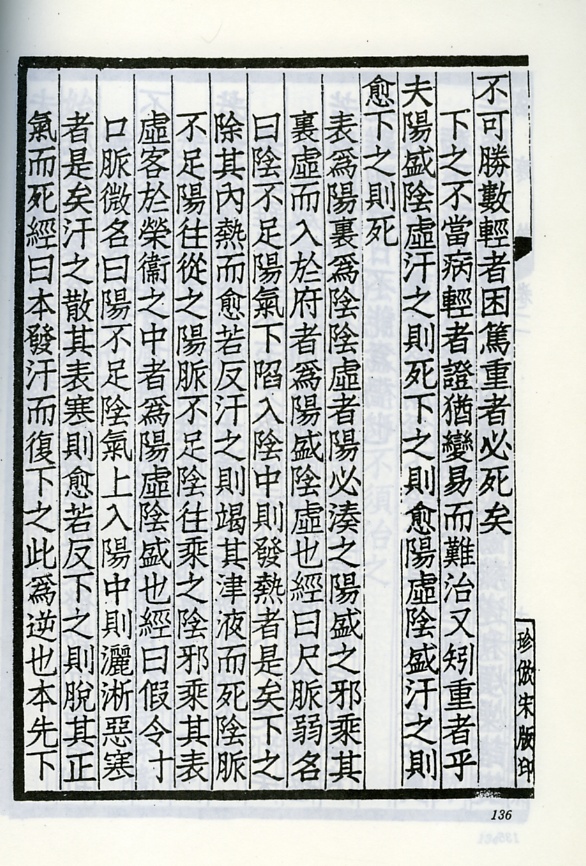 不可勝數輕者困篤重者必死矣
下之不當病輕者證猶變易而難治又矧重者乎
夫陽盛陰虛汗之則死下之則愈陽虛陰盛汗之則
愈下之則死
表爲陽裏爲陰陰虛者陽必湊之陽盛之邪乘其
裏虛而入於府者爲陽盛陰虛也經曰尺脈弱名
曰陰不足陽氣下陷入陰中則發熱者是矣下之
除其內熱而愈若反汗之則竭其津液而死陰脈
不足陽往從之陽脈不足陰往乘之陰邪乘其表
虛客於榮衞之中者爲陽虛陰盛也經曰假令寸
口脈微名曰陽不足陰氣上入陽中則灑淅惡寒
者是矣汗之散其表寒則愈若反下之則脫其正
氣而死經曰本發汗而復下之此爲逆也本先下
珍倣宋版印
136